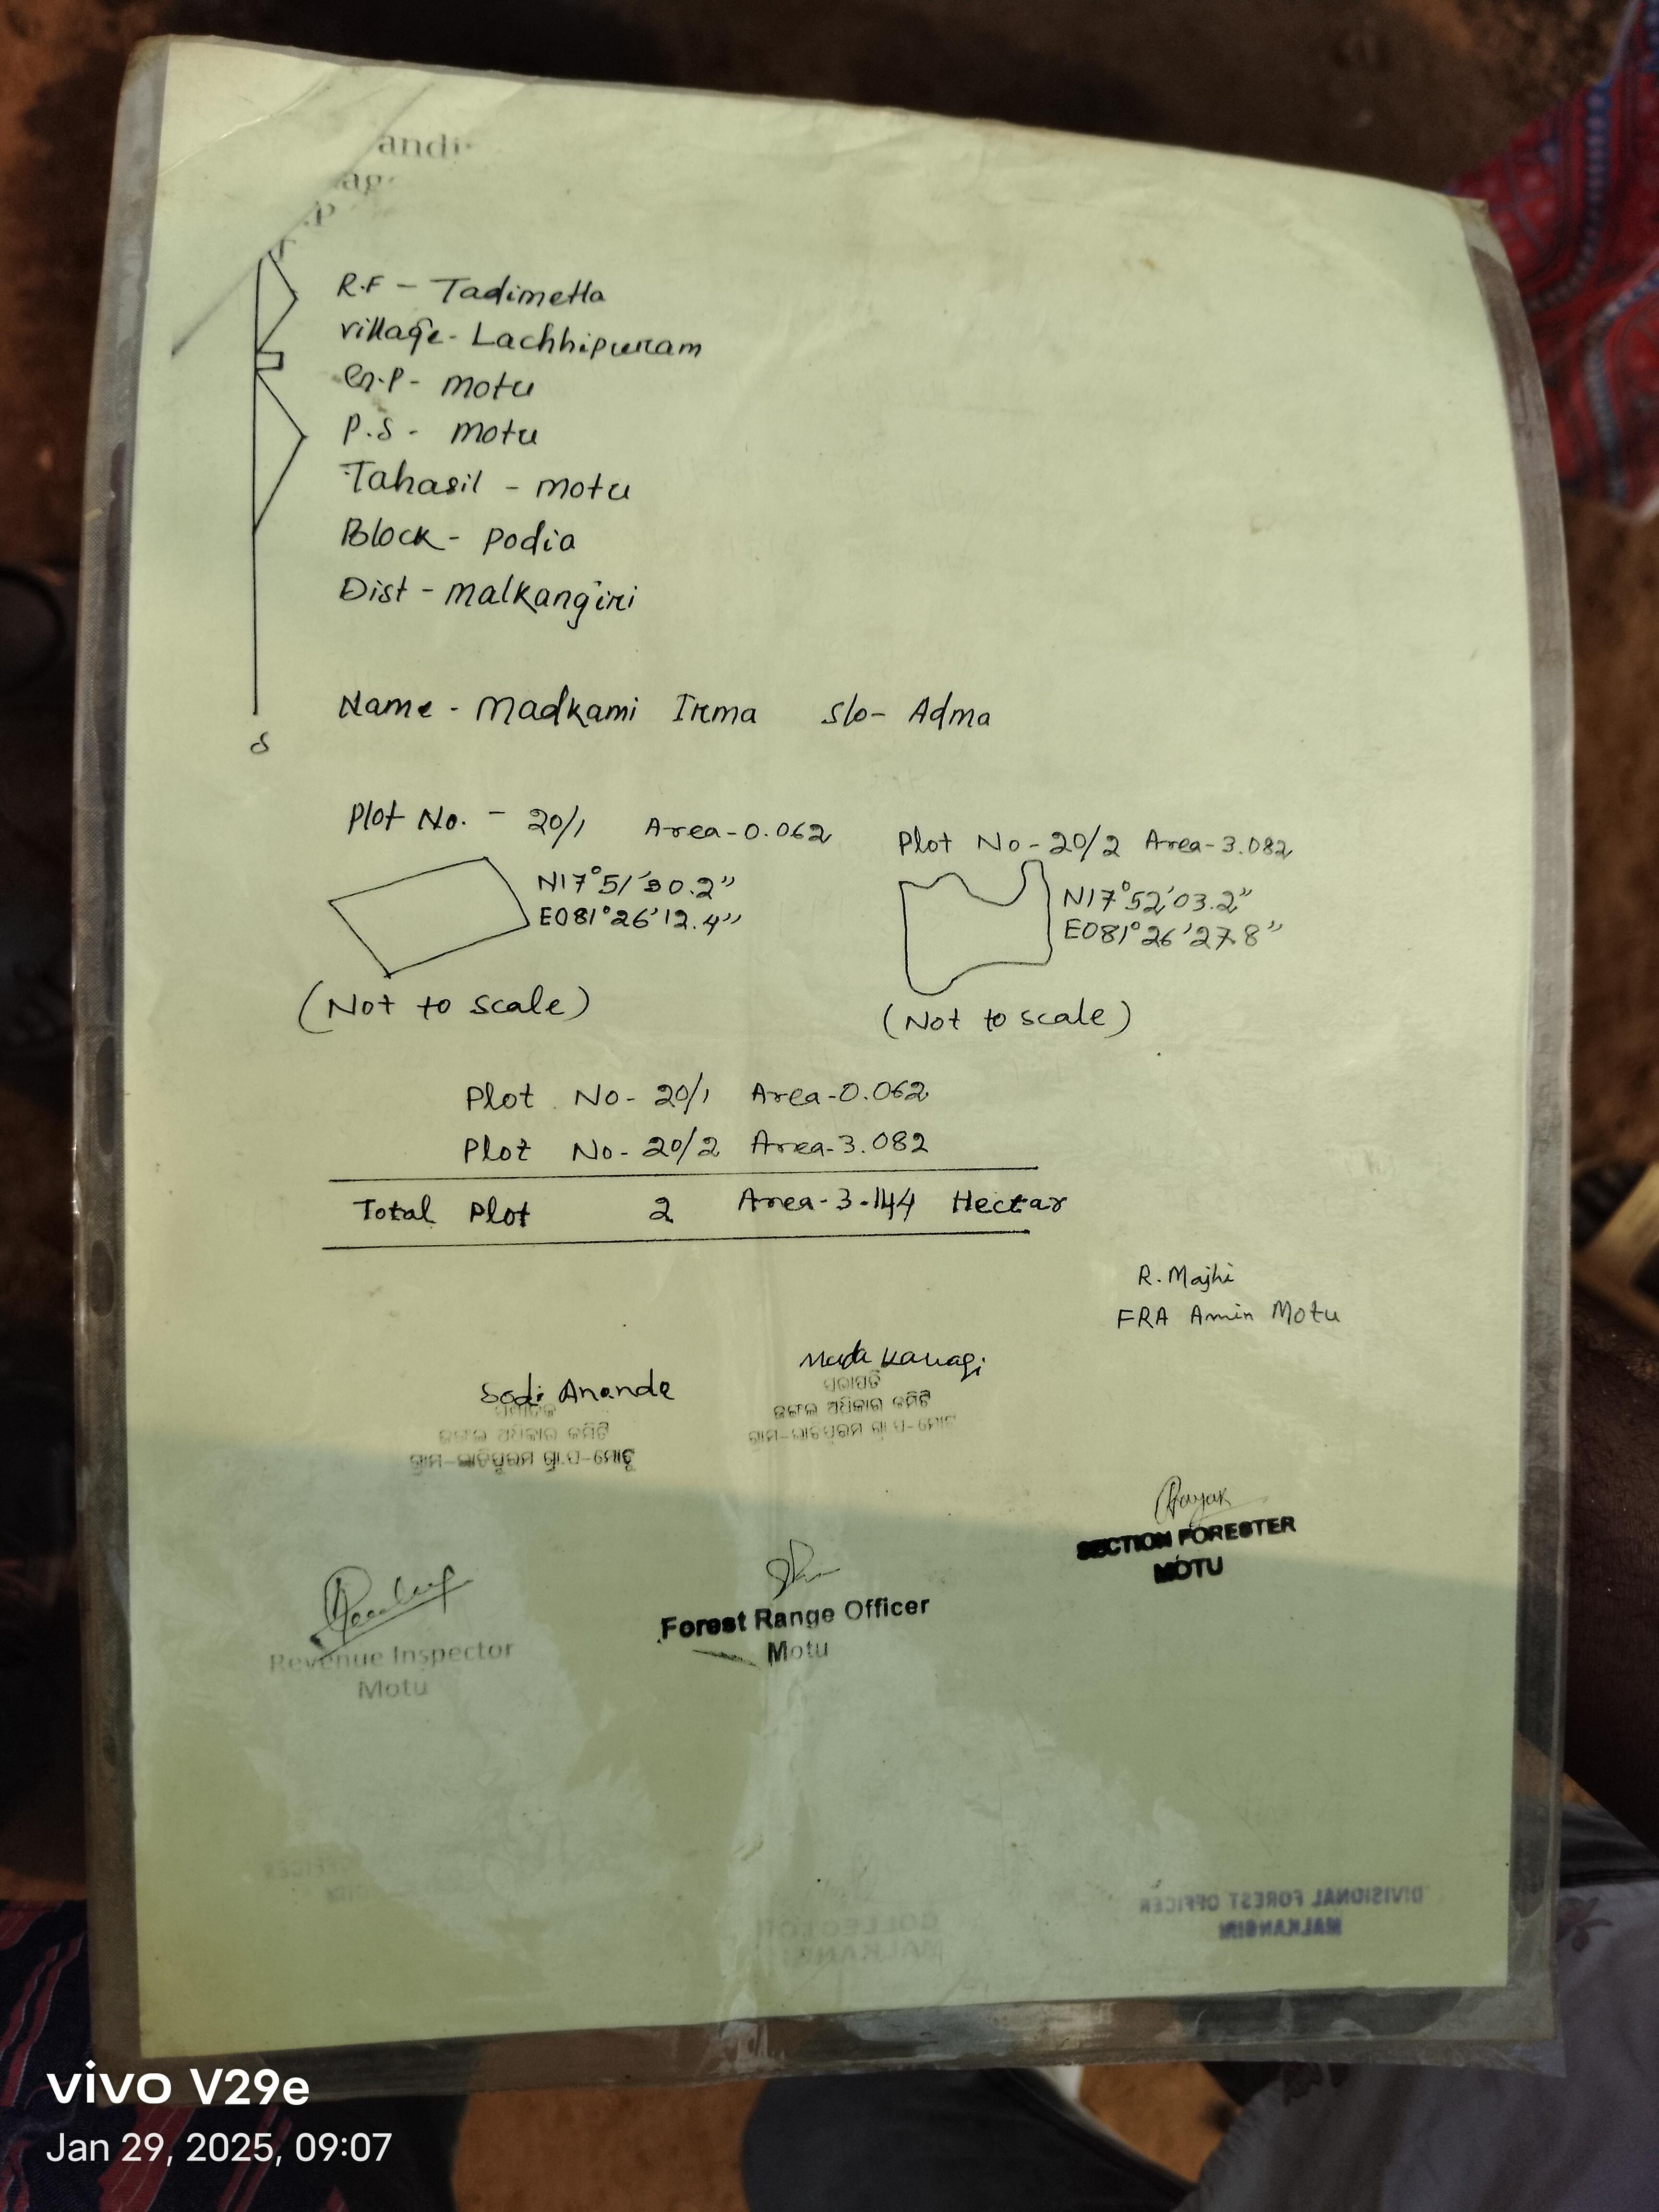 R.F - Tadimetla
village - Lachhipuram
G.P - motu
P.S - motu
Tahasil - motu
Block - Podia
Dist - malkangiri
Name - Madkami Irma S/o- Adma
Plot No. - 20/1 Area-0.062
N17°51'30.2"
E081°26'12.4"
(Not to scale)
Plot No-20/2 Area-3.082
N17°52'03.2"
E081°26'27.8"
(Not to scale)
Plot No- 20/1 Area-0.062
Plot No- 20/2 Area-3.082
Total Plot 2 Area-3.144 Hectar
R. Majhi
FRA Amin Motu
Sodi Anande
ଜଙ୍ଗଲ ଅଧିକାର କମିଟି
Muda Kanagi
ସଭାପତି
ଜଙ୍ଗଲ ଅଧିକାର କମିଟି
SECTION FORESTER
MOTU
Forest Range Officer
Motu
Revenue Inspector
Motu
COLLECTOR
DIVISIONAL FOREST OFFICER
MALKANGIRI
vivo V29e
Jan 29, 2025, 09:07